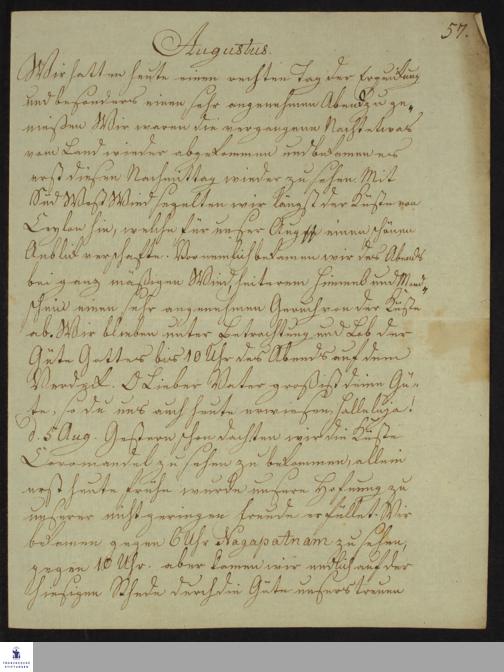 57.
Augustus.
Wir hatten heute einen rechten Tag der Erquickung
und besonders einen sehr angenehmen Abend zu ge=
nießen Wir waren die vergangene Nacht etwas
vom Land wieder abgekommen und bekamen es
erst diesen Nachmittag wieder zu sehen Mit
Süd West Wind segelten wir längst der Küste von
Ceylon hin, welche für unser Aug einen schönen
Anblick verschafte. Vornemlich bekamen wir des Abends
bei ganz mäßigen Wind heiterem Himmel und Mond=
schein einen sehr angenehmen Geruch von der Küste
ab. Wir blieben unter Betrachtung und Lob der
Güte Gottes bis 10 Uhr des Abends auf dem
Verdek. O Lieber Vater groß ist deine Gü=
te, so du uns auch heute erwiesen, Halleluja!
d. 5 Aug. Gestern schon dachten wir die Küste
Coromandel zu sehen zu bekommen, allein
erst heute frühe wurde unsere Hofnung zu
unserer nicht geringen Freude erfüllet. Wir
bekamen gegen 6 Uhr Nagapatnam zu sehen,
gegen 10 Uhr. aber kamen wir endlich auf der
hiesigen Rhede durch die Güte unsers treuen
FRANCKESCHE
STIFTUNGEN